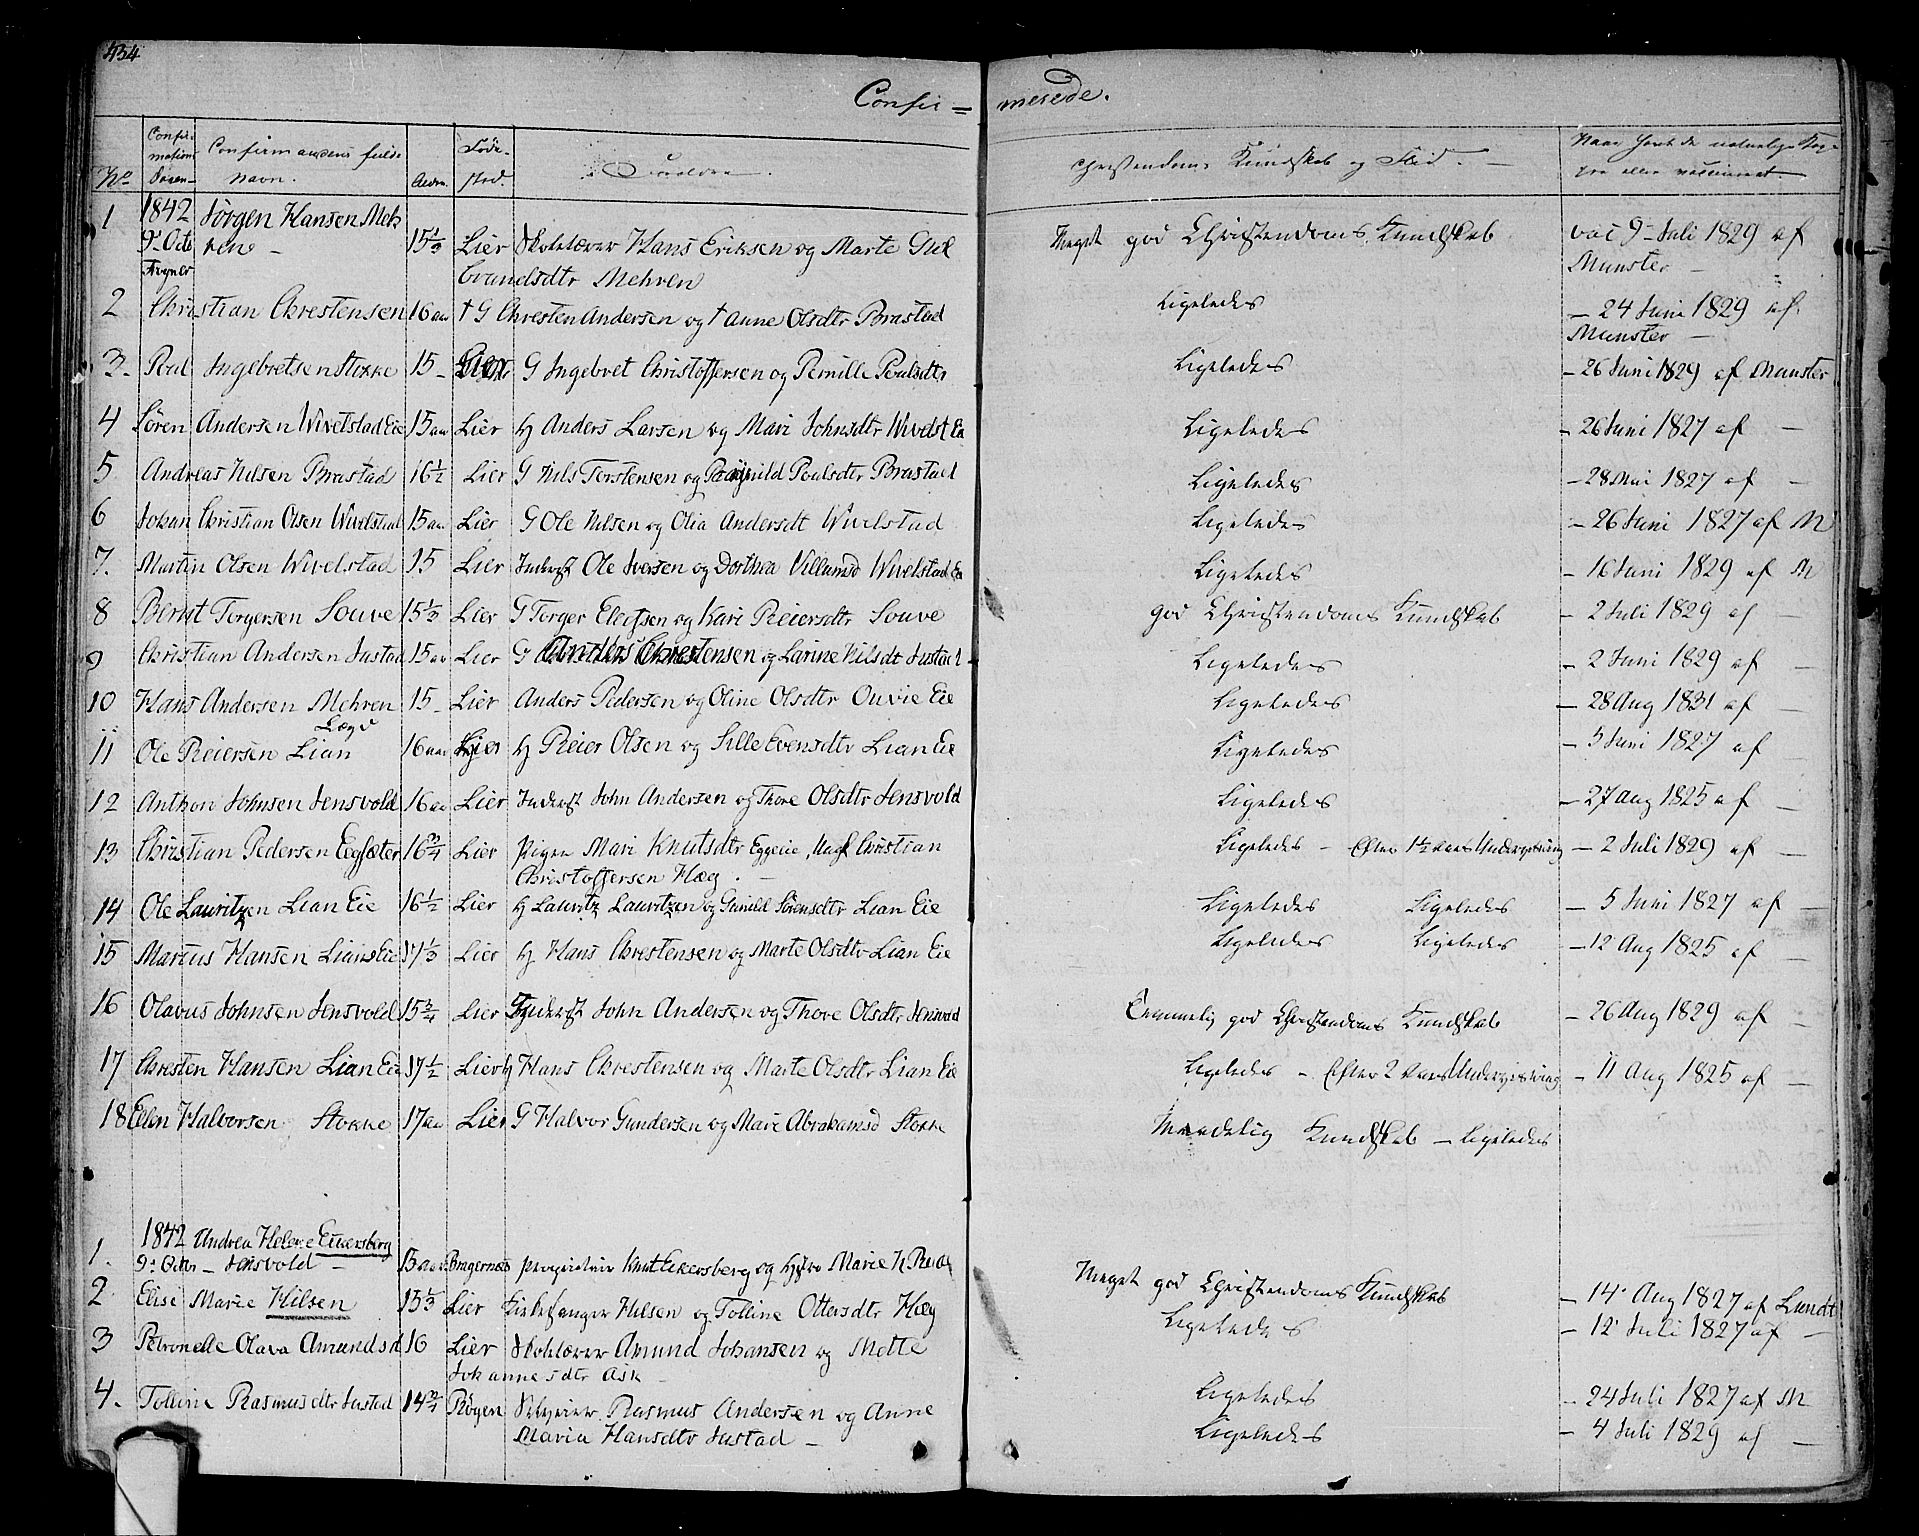 434
Confir= merede.
No
Confirmations Datum
Confirmandens fulde Navn.
Alder.
Føde-sted.
Forældre.
Christendoms Kundskab og Flid.
Naar havt de naturlige Kopper eller vaccineret.
1 1842 Jørgen Hansen Meh 15⅓ Lier Skolelærer Hans Eriksen og Marte Gul Meget god Christendoms Kundskab vac 9 Juli 1829 af
9 Octb ren - brandsdtr Mehren Munster -
2 Christian Chrestensen 16 aar † G Chresten Andersen og † Anne Olsdtr Brastad Ligeledes - 24 Juni 1829 af
Munster -
3. Poul Ingebretsen Stokke 15 - Lier G Ingebret Christoffersen og Pernille Poulsdtr Ligeledes - 26 Juni 1829 af Munster
4 Søren Andersen Wivelstad Eie 15 aar Lier H Anders Larsen og Mari Johnsdtr Wivelst Ei Ligeledes - 26 Juni 1827 af -
5 Andreas Nilsen Brastad 16½ Lier G Nils Torstensen og Poulsdtr Brastad Ligeledes - 28 Mai 1827 af -
6 Johan Christian Olsen Wivelstad 15 aar Lier G Ole Nilsen og Olia Andersdt Wivelstad Ligeledes - 26 Juni 1827 af M
7. Martin Olsen Wivelstad 15 Lier Inderst Ole Iversen og Dorthea Villumsd Wivelstad Ei Ligeledes - 16 Juni 1829 af M
8 Bernt Torgersen Souve 15⅓ Lier G Torger Elefsen og Kari Reiersdtr Souve god Christendoms Kundskab - 2 Juli 1829 af -
9 Christian Andersen Justad 15 aar Lier G Anders Chrestensen og Larine Nilsdt Justad Ligeledes - 2 Juni 1829 af -
10 Hans Andersen Mehren 15 - Lier Anders Pedersen og Oline Olsdtr Ouvie Eie Ligeledes - 28 Aug 1831 af -
Lægd
11 Ole Reiersen Lian 16 aar Lier H Reier Olsen og Sille Evensdtr Lian Eie Ligeledes - 5 Juni 1827 af -
12 Anthon Johnsen Jensvold 16 aar Lier Inderst John Andersen og Thore Olsdtr Jensvold Ligeledes - 27 Aug 1825 af -
13 Christian Pedersen Eegsæter 16¾ Lier Pigen Mari Knutsdtr Eggeeie, Ungk Christian Ligeledes - Efter 1½ Aars Underviisning - 2 Juli 1829 af -
Christoffersen Hæg. -
14 Ole Lauritzen Lian Eie 16½ Lier H Lauritz Lauritzen og Gunild Sørensdtr Lian Eie Ligeledes Ligeledes - 5 Juni 1827 af -
15 Marcus Hansen Lians Eie 17⅓ Lier H Hans Chrestensen og Marte Olsdtr Lian Eie Ligeledes Ligeledes - 12 Aug 1825 af -
16 Olavus Johnsen Jensvold 15¾ Lier Inderst John Andersen og Thore Olsdtr Jensvold Temmelig god Christendoms Kundskab - 26 Aug 1829 af -
17 Chresten Hansen Lian Eie 17½ Lier H Hans Chrestensen og Marte Olsdtr Lian Eie Ligeledes - Efter 2 Aars Underviisning - 11 Aug 1825 af -
18 Ellen Halvorsen Stokke 17 aar Lier G Halvor Gundersen og Mari Abrahamsd Stokke Maadelig Kundskab - Ligeledes
1. 1842 Andrea Helene Eckersberg
9 Octbr - Jensvold - 15 aar Bragernæs Proprietair Knut Eckersberg og Hustro Marie H. Meget god Christendoms Kundskab - 14 Aug 1827 af Lundt
2 Elise Marie Nilsen 15⅓ Lier Kirkesanger Nilsen og Tolline Ottersdtr Hæg Ligeledes - 12 Juli 1827 af -
3 Petronelle Olava Amundsd 16 Lier Skolelærer Amund Johansen og Mette Ligeledes - 24 Juli 1827 af M
Johannesdtr Ask -
4. Tolline Rasmusdtr Justad 14¾ Røgen Rasmus Andersen og Anne Ligeledes - 4 Juli 1829 af -
Maria Hansdtr Justad -